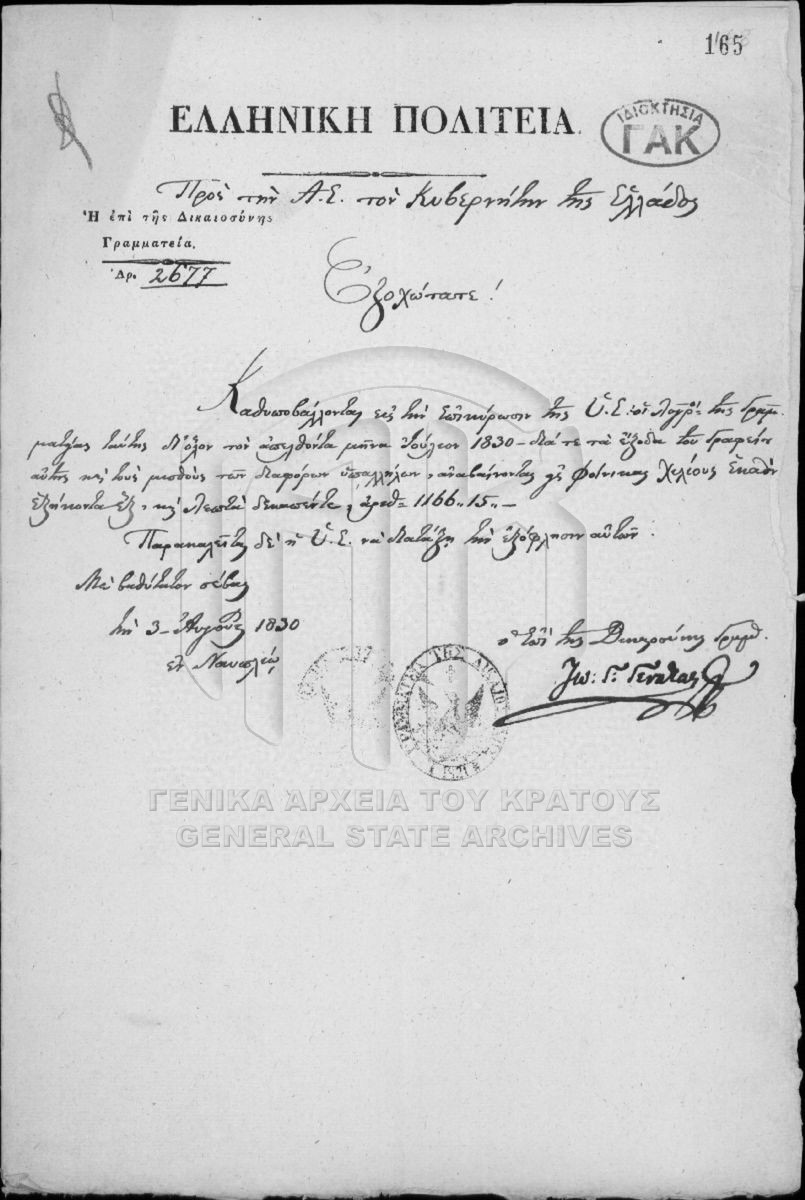 165
ΕΛΛΗΝΙΚΗ ΠΟΛΙΤΕΙΑ.
ΙΔΙΟΚΤΗΣΙΑ
ΓΑΚ
Πρὸς τὴν Α.Ε. τὸν Κυβερνήτην τῆς Ἑλλάδος
Ἡ ἐπὶ τῆς Δικαιοσύνης
Γραμματεία.
Ἀρ. 2677
Ἐξοχώτατε!
Καθυποβάλλονται εἰς τὴν ἐπικύρωσιν τῆς Ὑ.Ε. οἱ λογ/σμοὶ τῆς Γραμ-
ματείας ταύτης δι' ὅλον τὸν ἀπελθόντα μῆνα Ἰούλιον 1830 – διά τε τὰ ἔξοδα τοῦ Γραφείου
αὐτῆς καὶ τοὺς μισθοὺς τῶν διαφόρων ὑπαλλήλων, ἀναβαίνοντες εἰς Φοίνικας χιλίους ἑκατὸν
ἑξήκοντα ἓξ, καὶ λεπτὰ δεκαπέντε, ἀριθ= 1166,,15,,–
Παρακαλεῖται δὲ ἡ Ὑ.Ε. νὰ διατάξῃ τὴν ἐξόφλησιν αὐτῶν.
Μὲ βαθύτατον σέβας
τὴν 3 – Αὐγούς 1830
ἐν Ναυπλίῳ
ὁ ἐπὶ τῆς Δικαιοσύνης Γραμμ.
Ἰω. Γ. Γενατᾶς
ΓΡΑΜΜΑΤΕΙΑ ΤΗΣ ΔΙΚΑΙΟΣΥΝΗΣ
ΓΕΝΙΚΑ ΑΡΧΕΙΑ ΤΟΥ ΚΡΑΤΟΥΣ
GENERAL STATE ARCHIVES